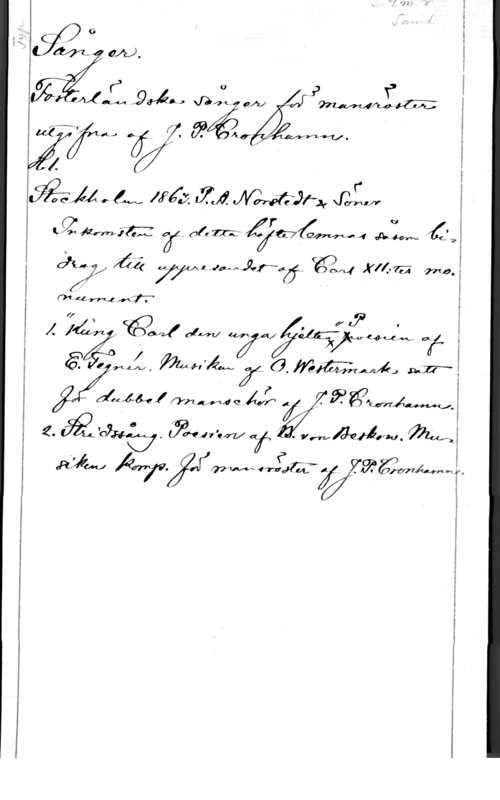 Sånger.
Fosterländska sånger för mansröster
utgifna af J. P. Cronhamn.
H. 1.
Stockholm 1862. P. A. Norstedt & Söner
Inkomsten af detta häfte lemnas såsom bi-
drag till uppresandet af Carl XII:tes mo-
nument.
1. "Kung Carl den unga hjelte" Poesien af
E. Tegnér. Musiken af O. Westermark, satt
för dubbel manschör af J. P. Cronhamn.
2. Stridssång. Poesien af B. von Beskow. Mu-
siken komp. för mansröster af J. P. Cronhamn.